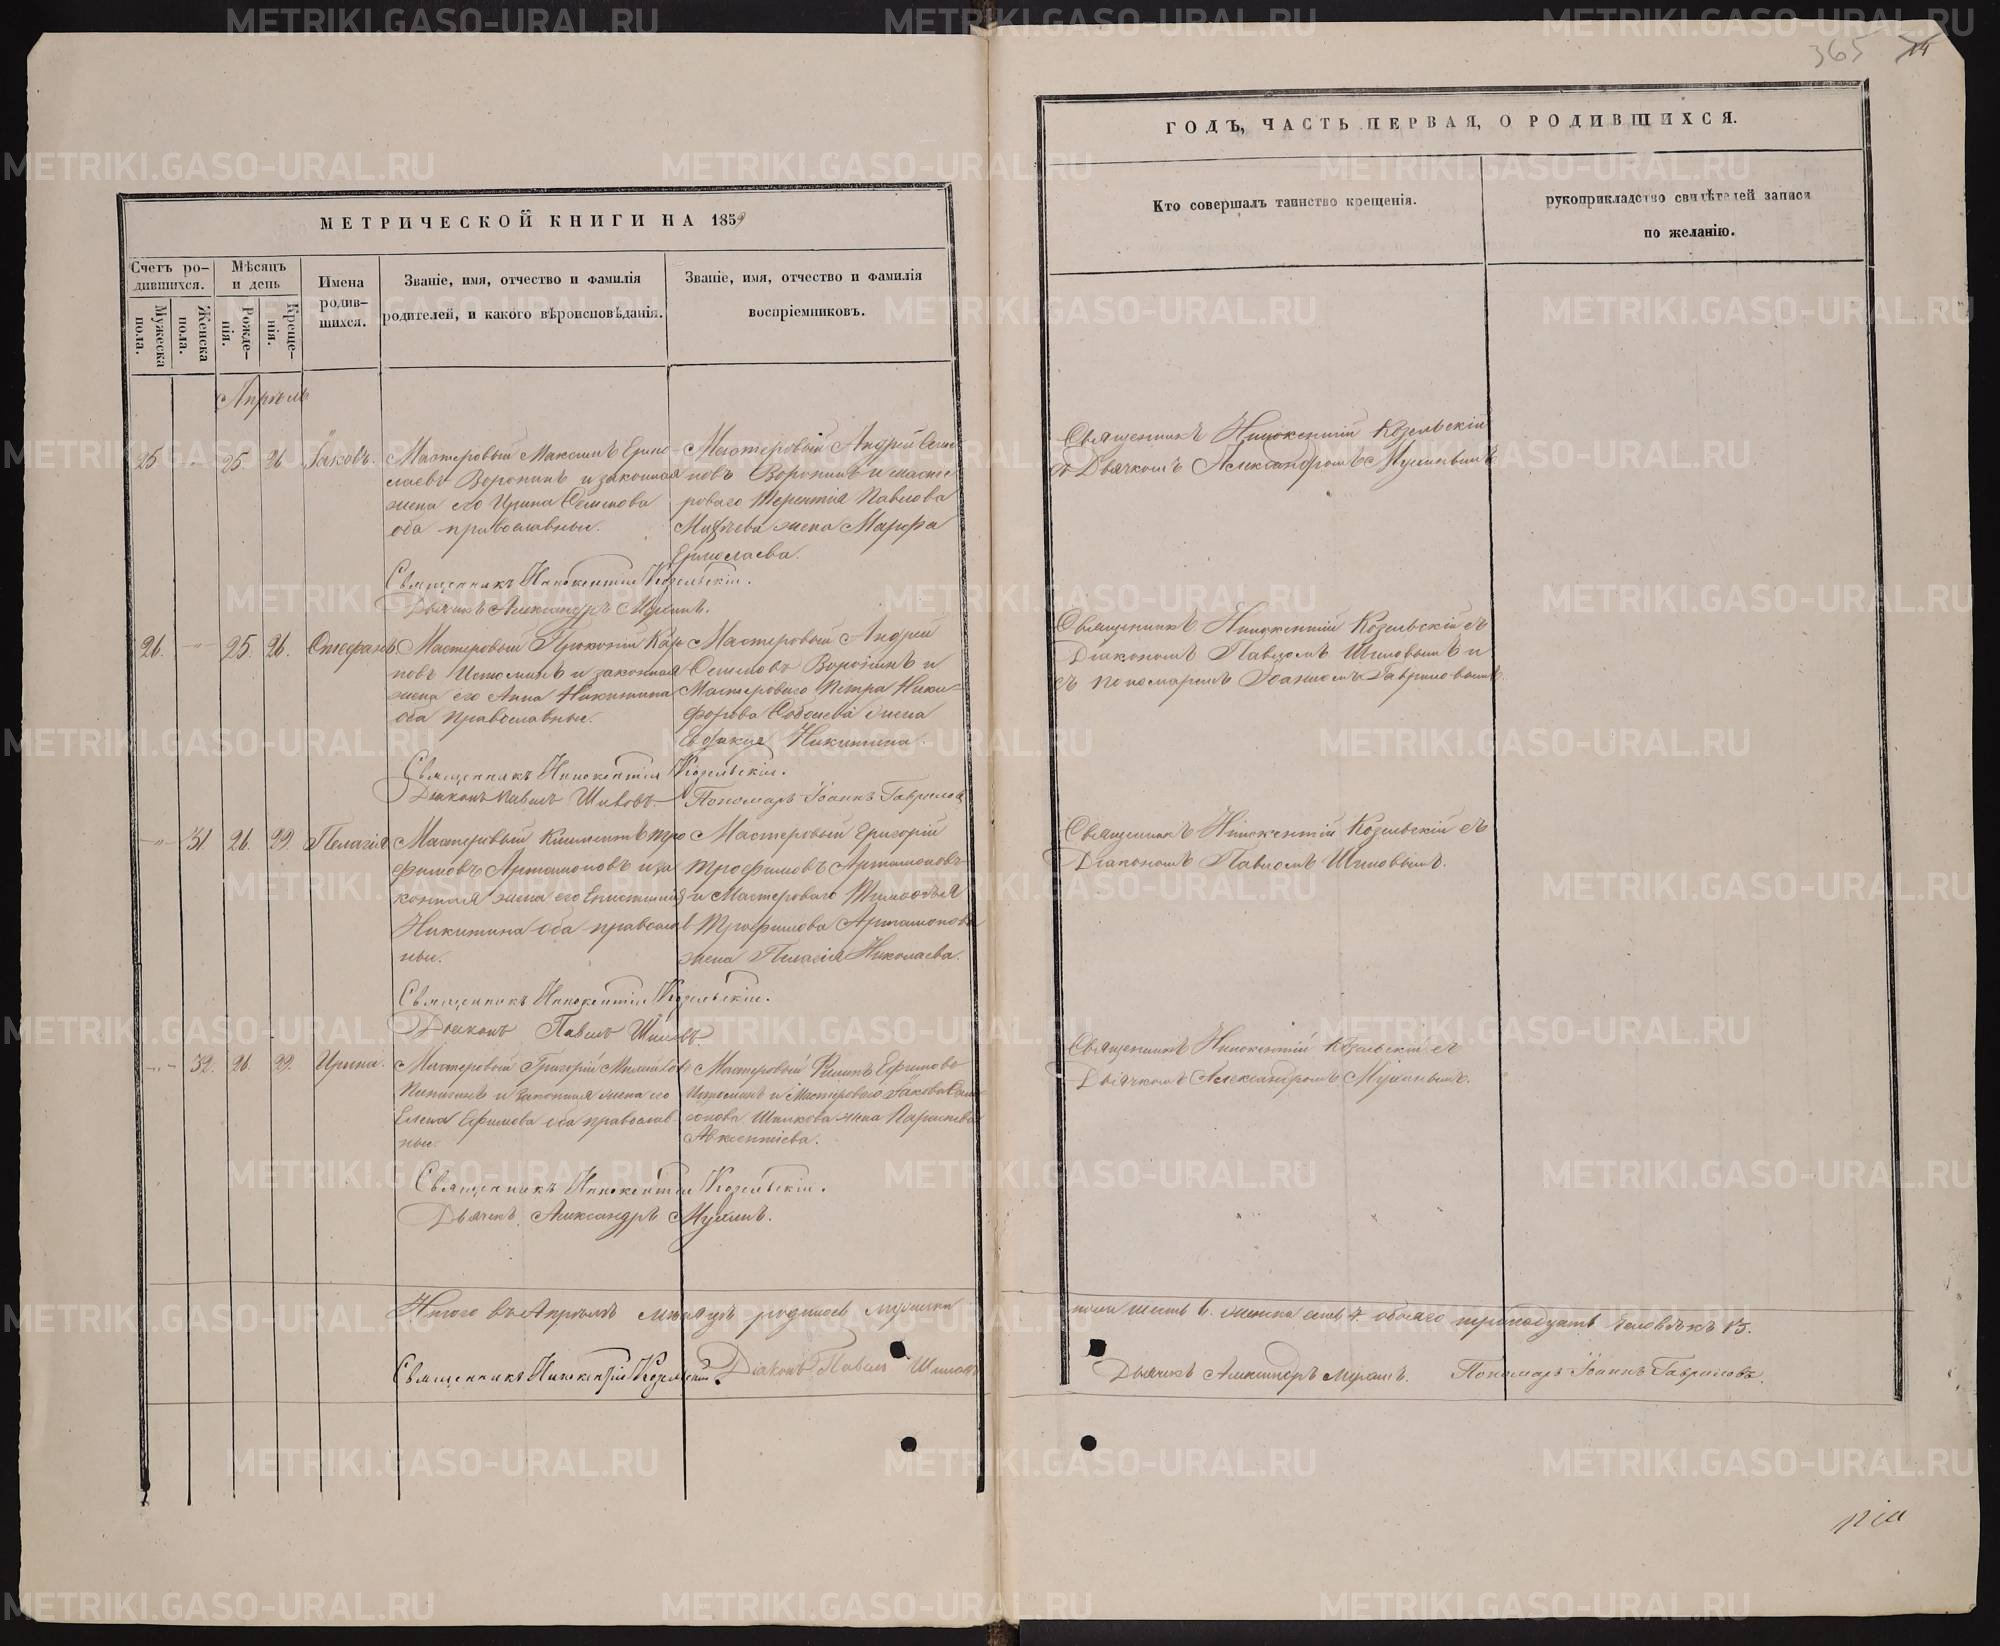 365 14
МЕТРИЧЕСКОЙ КНИГИ НА 1859
Счетъ ро-
дившихся.
Мужеска
пола.
Женска
пола.
Мѣсяцъ
и день
Рожде-
нія.
Креще-
нія.
Имена
родив-
шихся.
Званіе, имя, отчество и фамилія
родителей, и какого вѣроисповѣданія.
Званіе, имя, отчество и фамилія
воспріемниковъ.
Апрѣль
25 " 25 26 Іаковъ.
Мастеровый Максимъ Ермо-
лаевъ Воронинъ и законная
жена его Ирина Семенова
оба православные.
Мастеровый Андрей Семе
новъ Воронинъ и масте-
роваго Терентія Павлова
жена Марфа
Ермолаева.
Священникъ Иннокентій Козельскій.
Дьячекъ Александръ Мухинъ.
26. " 25. 26. Стефанъ
Мастеровый Прокопій Кар
повъ Истоминъ и законная
жена его Анна Никитина
оба православные.
Мастеровый Андрей
Семеновъ Воронинъ и
Мастероваго Петра Ники-
форова Соболева жена
Никитина.
Священникъ Иннокентій Козельскій.
Діаконъ Павелъ Шиловъ. Пономарь Іоаннъ Гавриловъ
" 31 26. 29. Пелагія
Мастеровый Климентъ Тро
фимовъ Артамоновъ и за
конная жена его
Никитина оба православ
ные.
Мастеровый Григорій
Трофимовъ Артамоновъ
и Мастероваго Тимофѣя
Трофимова Артамонова
жена Пелагія Николаева.
Священникъ Иннокентій Козельскій.
Діаконъ Павелъ Шиловъ.
" 32. 26. 29. Ирина.
Мастеровый Григорій
и законная жена его
Елена Ефимова оба православ
ные.
Мастеровый Филипъ Ефимовъ
и Мастероваго Іакова
жена Параскева
Авксентіева.
Священникъ Иннокентій Козельскій.
Дьячекъ Александръ Мухинъ.
Итого въ Апрѣлѣ мѣсяцѣ родилось мужеска
Священникъ Иннокентій Козельскій. Діаконъ Павелъ Шиловъ
ГОДЪ, ЧАСТЬ ПЕРВАЯ, О РОДИВШИХСЯ.
Кто совершалъ таинство крещенія.
рукоприкладство свидѣтелей записи
по желанію.
Священникъ Иннокентій Козельскій
съ Дьячкомъ Александромъ Мухинымъ
Священникъ Иннокентій Козельскій съ
Діакономъ Павломъ Шиловымъ и
съ пономаремъ Іоанномъ Гавриловымъ.
Священникъ Иннокентій Козельскій съ
Діакономъ Павломъ Шиловымъ.
Священникъ Иннокентій Козельскій съ
Дьячкомъ Александромъ Мухинымъ.
пола шесть 6. женска семь 7. обоего тринадцать человѣкъ 13.
Дьячекъ Александръ Мухинъ. Пономарь Іоаннъ Гавриловъ.
METRIKI.GASO-URAL.RU